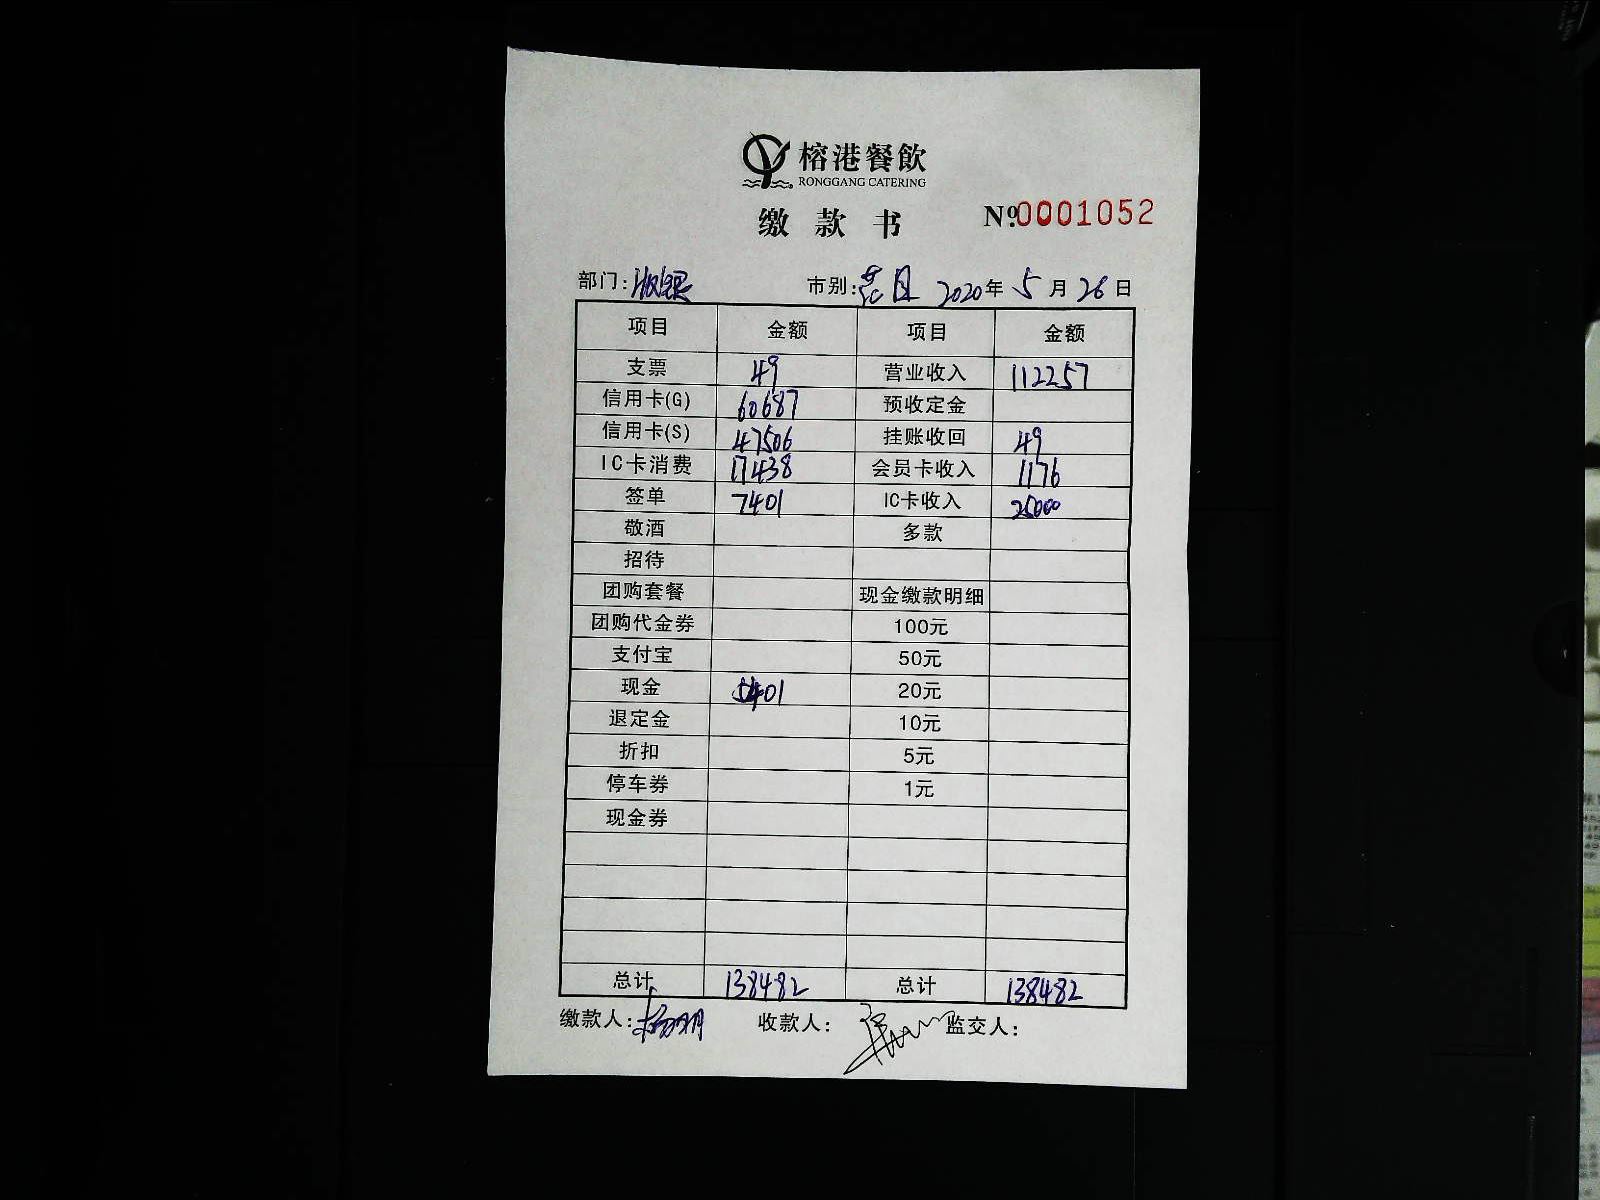 榕港餐飲
RONGGANG CATERING
缴款书 Nº:0001052
部门:收银 市别: 2020年5月26日
项目 金额 项目 金额
支票 49 营业收入 112257
信用卡(G) 60687 预收定金
信用卡(S) 47506 挂账收回 49
IC卡消费 17438 会员卡收入 1176
签单 7401 IC卡收入 25000
敬酒 多款
招待
团购套餐 现金缴款明细
团购代金券 100元
支付宝 50元
现金 5401 20元
退定金 10元
折扣 5元
停车券 1元
现金券
总计 138482 总计 138482
缴款人: 收款人: 监交人: